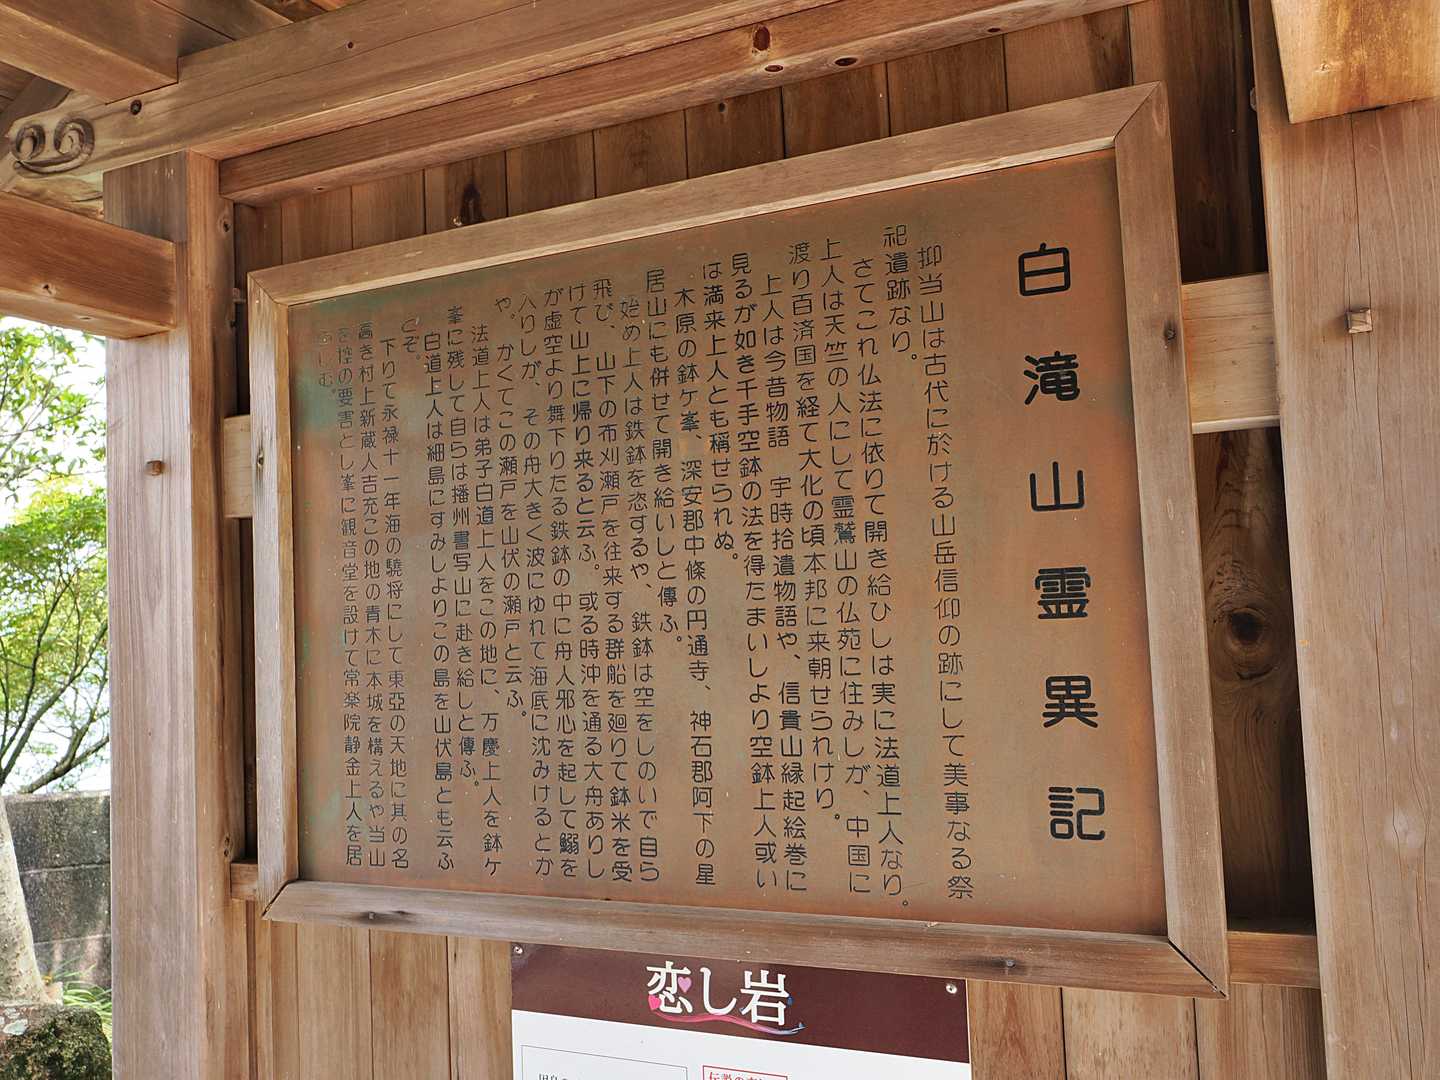 白滝山霊異記
抑当山は古代に於ける山岳信仰の跡にして美事なる祭
祀遺跡なり。
さてこれ仏法に依りて開き給ひしは実に法道上人なり。
上人は天竺の人にして霊鷲山の仏苑に住みしが、中国に
渡り百済国を経て大化の頃本邦に来朝せられけり。
上人は今昔物語　宇時拾遺物語や、信貴山縁起絵巻に
見るが如き千手空鉢の法を得たまいしより空鉢上人或い
は満来上人とも稱せられぬ。
木原の鉢ケ峯、深安郡中條の円通寺、神石郡阿下の星
居山にも併せて開き給いしと傳ふ。
始め上人は鉄鉢を恣するや、鉄鉢は空をしのいで自ら
飛び、山下の布刈瀬戸を往来する群船を廻りて鉢米を受
けて山上に帰り来ると云ふ。或る時沖を通る大舟ありし
が虚空より舞下りたる鉄鉢の中に舟人邪心を起して鰯を
入りしが、その舟大きく波にゆれて海底に沈みけるとか
や。かくてこの瀬戸を山伏の瀬戸と云ふ。
法道上人は弟子白道上人をこの地に、万慶上人を鉢ケ
峯に残して自らは播州書写山に赴き給しと傳ふ。
白道上人は細島にすみしよりこの島を山伏島とも云ふ
とぞ。
下りて永禄十一年海の驍将にして東亞の天地に其の名
高き村上新蔵人吉充この地の青木に本城を構えるや当山
を控の要害とし峯に観音堂を設けて常楽院静金上人を居
らしむ。
恋し岩